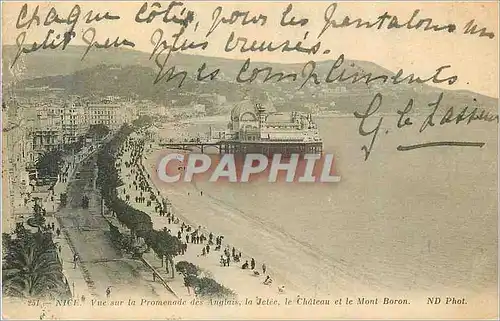 Chaque Côté, pour les pantalons un
petit peu plus creusés.
Mes Compliments
G. le
CPARAMA
251 - NICE. Vue sur la Promenade des Anglais, la Jetée, le Château et le Mont Boron. ND Phot.